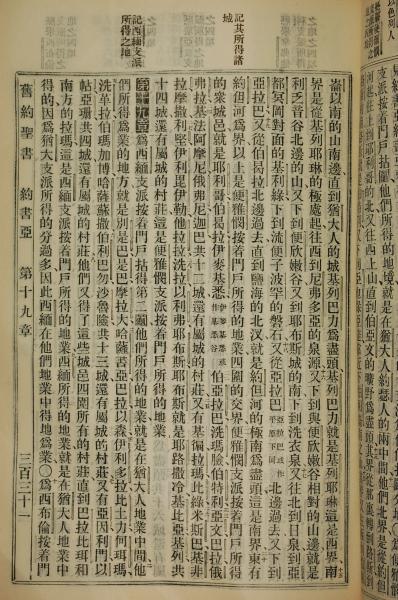 記其所得諸
城
記西緬支派
所得之地
崙以南的山南邊直到猶大人的城基列巴力爲盡頭基列巴力就是基列耶琳這是西界南
界是從基列耶琳的極處起往西到尼弗多亞的泉源又下到與便欣嫩谷相對的山邊就是
利乏音谷北邊的山又下到便欣嫩谷又到耶布斯城的南下到洗衣泉又往北到日泉到亞
都冥岡對面的基利綠下到流便子波罕的磐石又從亞拉巴亞拉巴或作平原下同北邊過去又下到
亞拉巴又從伯曷拉北邊過去直到鹽海的北汊就是約但河的極南爲盡頭這是南界東有
約但河爲界以上是便雅憫支派按着門戶所得的地業四圍的交界便雅憫支派按着門戶所得
的衆城邑就是耶利哥伯曷拉伊麥基悉伊麥基悉或作基悉谷伯亞拉巴洗瑪臉伯特利亞文巴拉俄
弗拉基法阿摩尼俄弗尼迦巴共十二城還有屬城的村莊又有基徧拉瑪比綠米斯巴基非
拉摩撒利堅伊利毘伊勒他拉拉洗拉以利弗耶布斯耶布斯就是耶路撒冷基比亞基列共
十四城還有屬城的村莊這是便雅憫支派按着門戶所得的地業
第十九章爲西緬支派按着門戶拈得第二鬮他們所得的地業就是在猶大人地業中間他
們所得爲業的地方就是別是巴是巴摩拉大哈薩書亞巴拉以森伊利多拉比土力何珥瑪
洗革拉伯瑪加博哈薩蘇撒伯利巴勿沙魯險共十三城還有屬城的村莊又有亞因利門以
帖亞珊共四城還有屬城的村莊他們又得了這些城邑四圍所有的村莊直到巴拉比珥相
南方的拉瑪這是西緬支派按着門戶所得的地業西緬所得的地業就是在猶大人地業中
得的因爲猶大支派所得的分過多因此西緬在他們地業中得地爲業〇爲西布倫按着門
舊約聖書 約書亞 第十九章 三百二十一